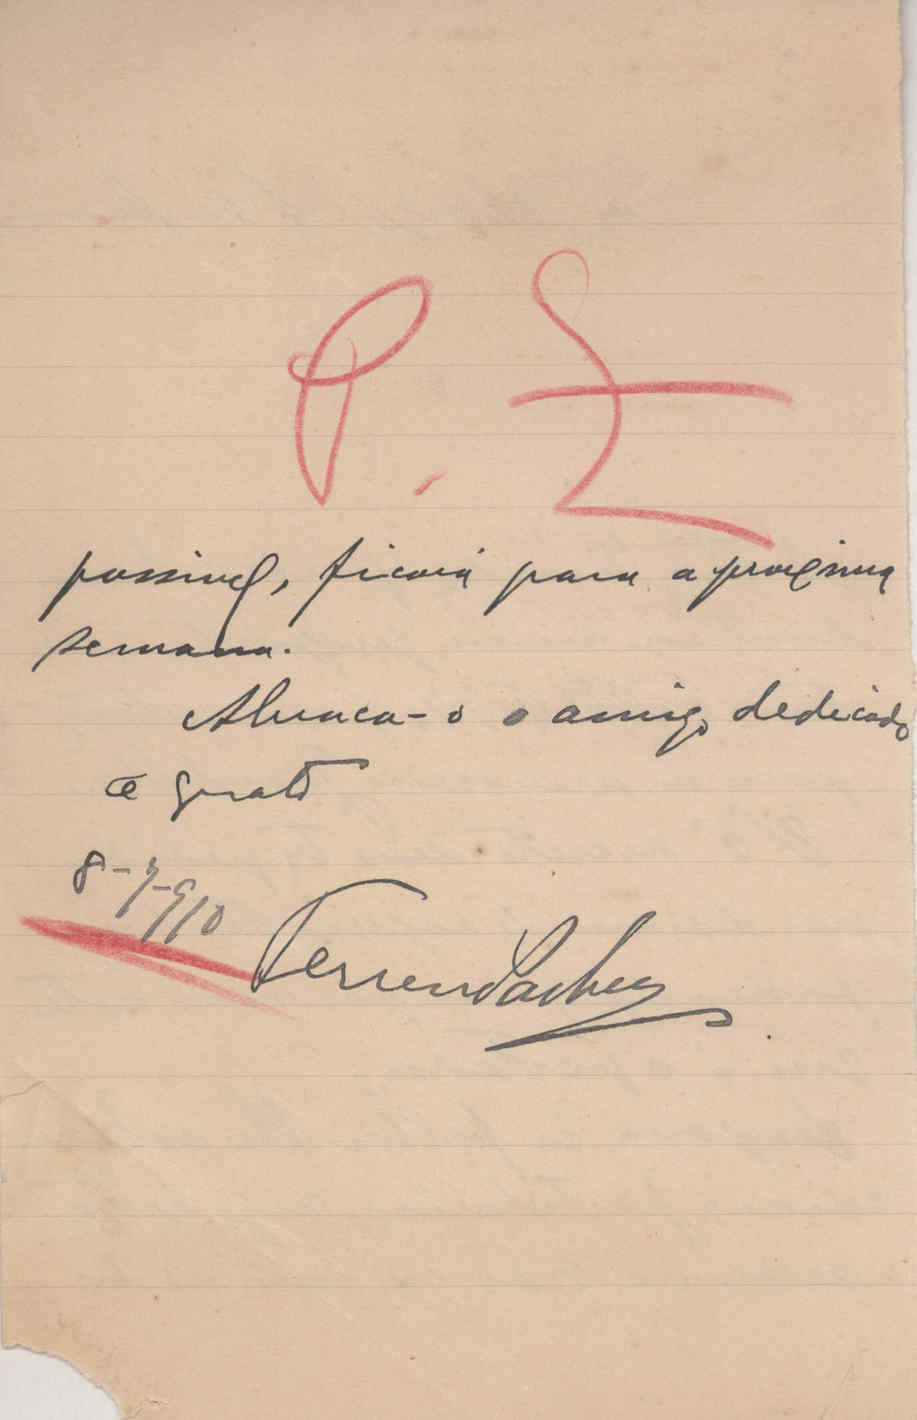 P. I
possivel, ficará para a proxima
semana.
Abraca-o o amigo dedicado
e grato
8-7-910